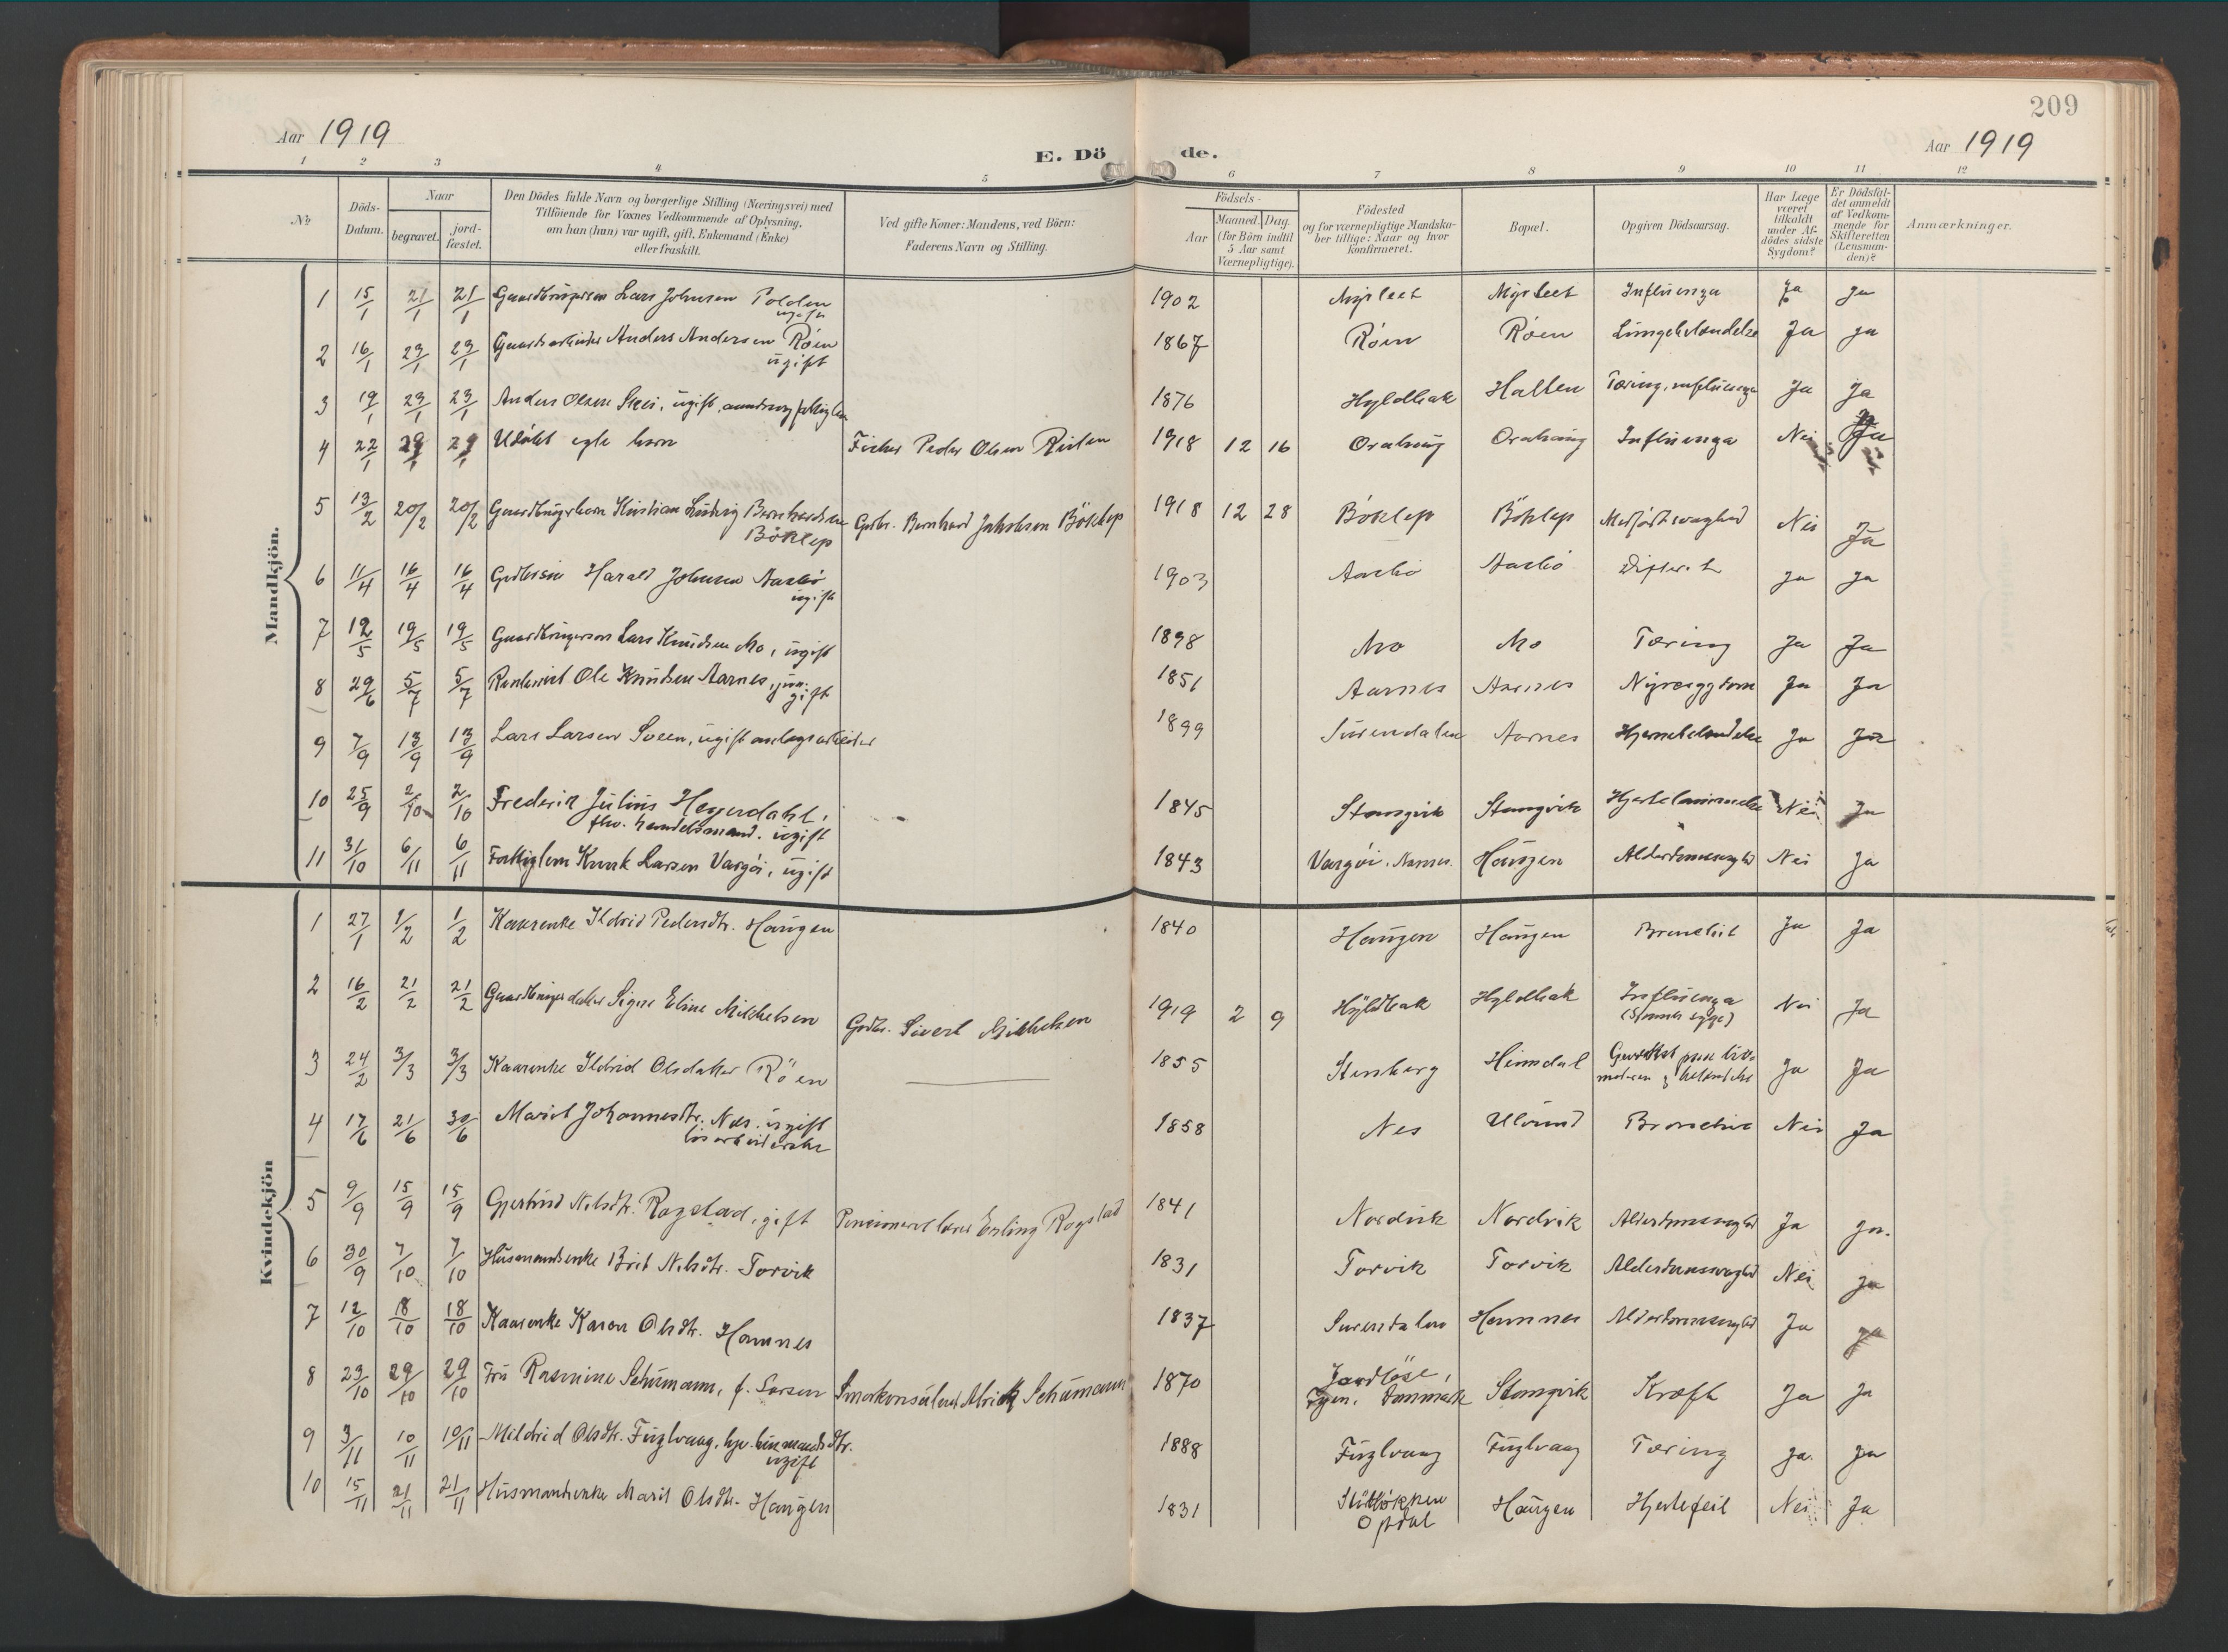 209
Aar 1919
E. Dö de.
Aar 1919
1 2 3 4 5 6 7 8 9 10 11 12
No
Döds-Datum.
Naar
begravet.
jord-fæstet.
Den Dödes fulde Navn og borgerlige Stilling (Næringsvei) med
Tilföiende for Voxnes Vedkommende af Oplysning,
om han (hun) var ugift, gift, Enkemand (Enke)
eller fraskilt.
Ved gifte Koner: Mandens, ved Börn:
Faderens Navn og Stilling.
Födsels-
Aar
Maaned. Dag.
(for Börn indtil
5 Aar samt
Værnepligtige).
Födested
og for værnepligtige Mandska-
ber tillige: Naar og hvor
konfirmeret.
Bopæl.
Opgiven Dödsaarsag.
Har Læge
været
tilkaldt
under Af-
dödes sidste
Sygdom?
Er Dödsfal-
det anmeldt
af Vedkom-
mende for
Skifteretten
(Lensman-
den)?
Anmærkninger.
Mandkjön.
1 15/1 21/1 21/1 Lars Johnsen 1902 Influenza Ja Ja
ugift
2 16/1 23/1 23/1 Anders Andersen Röen 1867 Röen Röen Lungebetændelse Ja Ja
ugift
3 19/1 23/1 23/1 Anders Olsen ugift, 1876 Hyldbak Halten Tæring, influenza Ja Ja
4 22/1 29/1 29/1 Udöbt egte barn Fisker Peder Olsen 1918 12 16 Influenza Nei Ja
5 13/2 20/2 20/2 Kristian Ludvig Bernhardsen Gbr. Bernhard Jakobsen Böklep 1918 12 28 Böklep Böklep Medfödt svaghed Nei Ja
Böklep
6 11/4 16/4 16/4 Harald Johnsen Aasbö 1903 Aasbö Aasbö Ja Ja
ugift
7 12/5 19/5 19/5 Lars Knudsen Mo, ugift 1898 Mo Mo Tæring Ja Ja
8 29/6 5/7 5/7 Ole Knudsen Aarnes, jun. 1851 Aarnes Aarnes Nyresygdom Ja Ja
gift
9 7/9 13/9 13/9 Lars Larsen Sveen, ugift anlægsarbeider 1899 Surendalen Aarnes Hjernebetændelse Ja Ja
10 25/9 2/10 2/10 Frederik Julius Heyerdahl, 1845 Stangvik Stangvik Hjertelammelse Nei Ja
fhv. handelsmand. ugift
11 31/10 6/11 6/11 Fattiglem Knut Larsen Vaagöi, ugift 1843 Vaagöi, Haugen Alderdomssvaghed Nei Ja
Kvindekjön
1 27/1 1/2 1/2 Kaarenke Ildrid Pedersdtr. Haugen 1840 Haugen Haugen Bronchit Ja Ja
2 16/2 21/2 21/2 Signe Eline Mikkelsen Gbr. Sivert Mikkelsen 1919 2 9 Hyldbak Hyldbak Influenza Nei Ja
(Spansk syge)
3 24/2 3/3 3/3 Kaarenke Ildrid Olsdatter Röen 1855 Stenberg Heimdal Ja Ja
4 17/6 21/6 30/6 Marit Johannesdtr. Nes, ugift 1858 Nes Ulvund Nei Ja
lösarbeiderske
5 9/9 15/9 15/9 Gjertrud Nilsdtr. Rogstad, gift Pensioneret lærer Erling Rogstad 1841 Nordvik Nordvik Alderdomssvaghed Ja Ja.
6 30/9 7/10 7/10 Husmandsenke Brit Nilsdtr. Torvik 1831 Torvik Torvik Alderdomssvaghed Nei Ja
7 12/10 18/10 18/10 Kaarenke Karen Olsdtr. Hamnes 1837 Surendalen Hamnes Alderdomssvaghed Ja Ja
8 23/10 29/10 29/10 Fru Rasmine Schumann, f. Larsen Smörkonsulent Alrick Schumann 1870 Stangvik Kræft Ja Ja
Fyen, Danmark
9 3/11 10/11 10/11 Mildrid Olsdtr. Fuglvaag, husmandsdtr. 1888 Fuglvaag Fuglvaag Tæring Ja. Ja
ugift
10 15/11 21/11 21/11 Husmandsenke Marit Olsdtr. Haugen 1831 Haugen Hjertefeil Nei Ja
Opdal